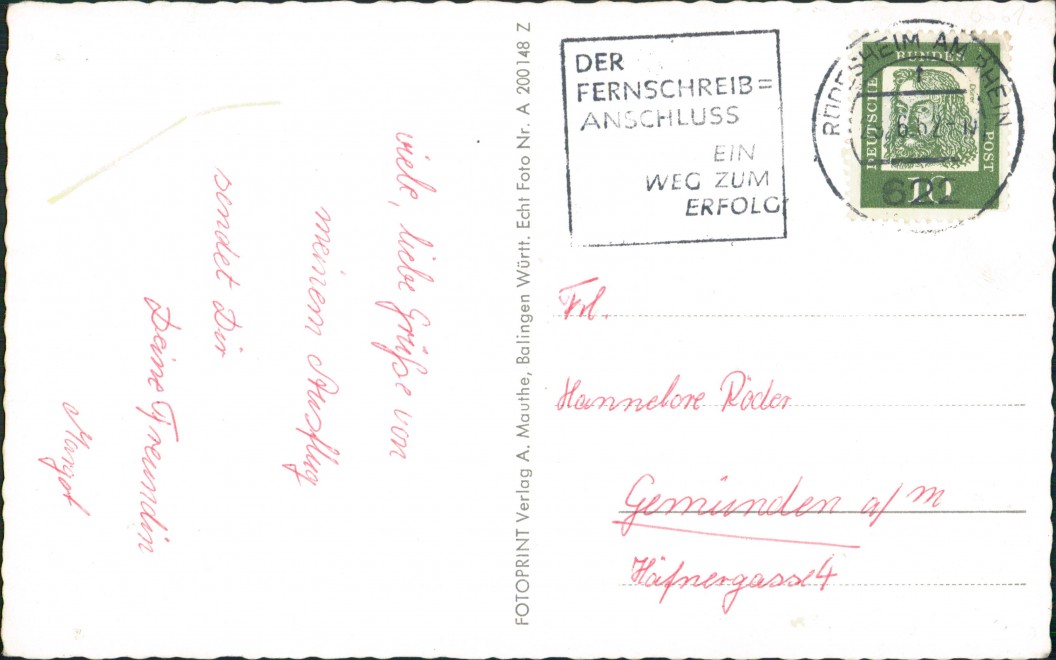 viele, liebe Grüße von
meinem Ausflug
sendet Dir
Deine Freundin
Margot
FOTOPRINT Verlag A. Mauthe, Balingen Württ. Echt Foto Nr. A 200148 Z
DER
FERNSCHREIB=
ANSCHLUSS
EIN
WEG ZUM
ERFOLG
RÜDESHEIM AM RHEIN
6.62
622
DEUTSCHE
BUNDES
POST
Dürer
10
Frl.
Hannelore Röder
Gemünden a/m
Häfnergasse 4